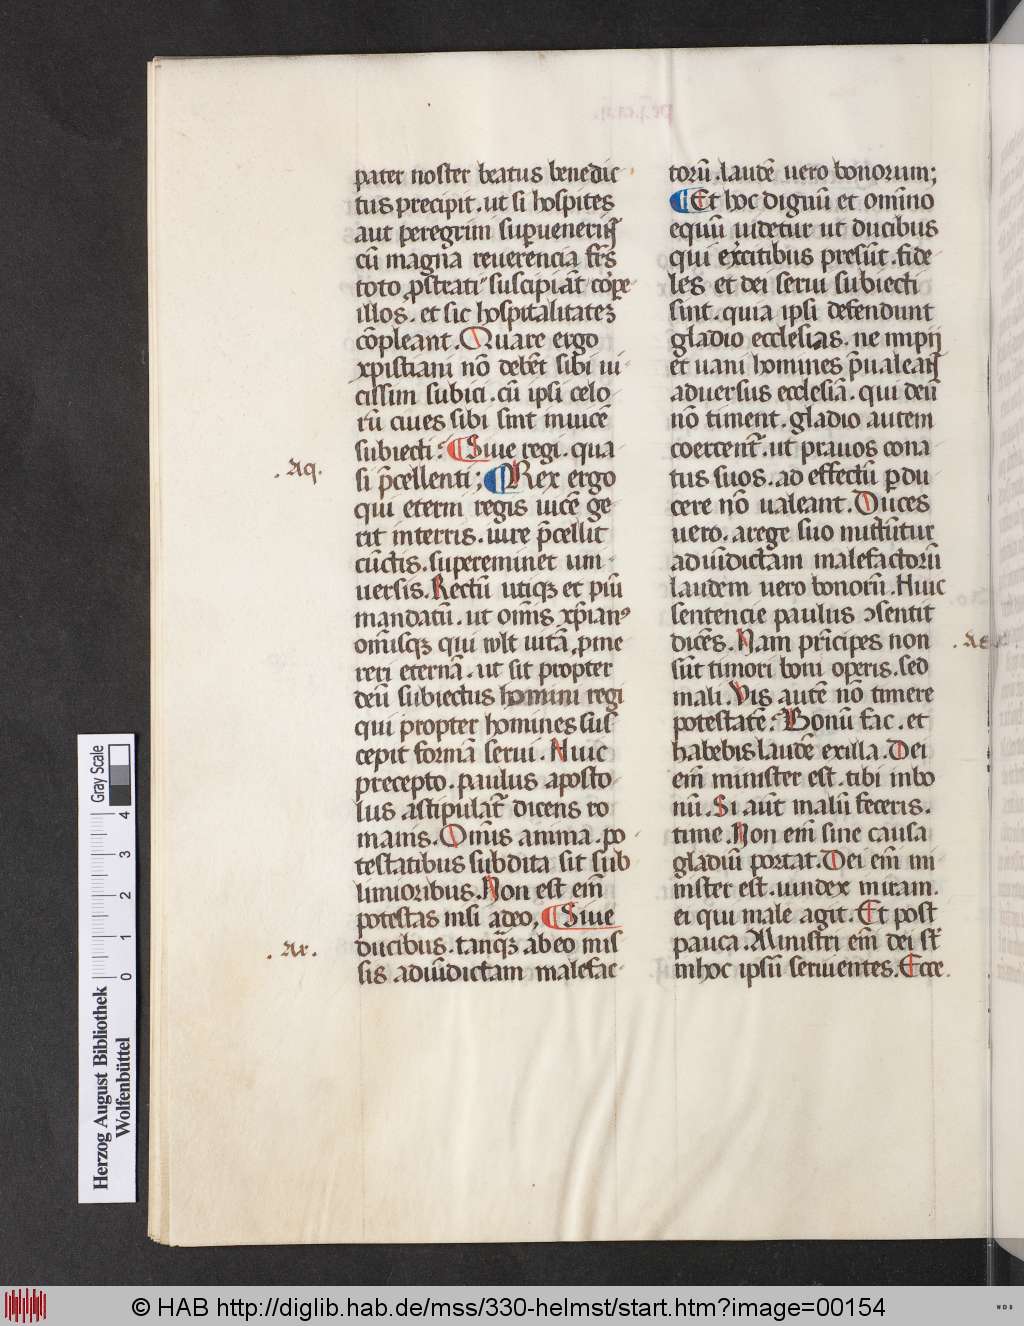 pater noster beatus benedic
tus precipit. ut si hospites
aut peregrini sup̱ueneriñt
cū magna reuerencia fr̄s
toto ꝓstrati suscipiāt corꝑe
illos. et sic hospitalitatēꝫ
cōpleant. Quare ergo
xpistiani nō debēt sibi ui
cissim subici. cū ipsi celo
rū ciues sibi sint inuicē
subiecti: ¶ Siue regi. qua
.Aq.
si p̄cellenti; ¶ Rex ergo
qui eterni regis uicē ge
rit interris. iure p̄cellit
cūctis. supereminet uni
uersis. Rectū utiqꝫ et piū
mandatū. ut om̄is xp̄ianꝰ
om̄isqꝫ qui wlt uitā ꝓme
reri eternā. ut sit propter
deū subiectus homini regi
qui propter homines sus
cepit formā serui. Huic
precepto. paulus aposto
lus astipulat᷑ dicens ro
manis. Om̄is anima. po
testatibus subdita sit sub
limioribus. Non est em̄
potestas nisi adeo, ¶ Siue
.Ar.
ducibus. tanq̄ꝫ ab eo mis
sis aduīdictam malefac
torū. laudē uero bonorum;
¶ Et hoc dignū et omīno
equū uidetur ut ducibus
qui exercitibus presūt. fide
les et dei serui subiecti
sint. quia ipsi defendunt
gladio ecclesias. ne impij
et uani homines p̄ualeāt
aduersus ecclesiā. qui deū
nō timent. gladio autem
coercent᷑. ut prauos cona
tus suos. ad effectū ꝑdu
cere nō ualeant. Duces
uero. arege suo mittūtur
aduīdictam malefactorū
laudem uero bonorū. Huic
sentencie paulus ↄsentit
dicēs. Nam prīcipes non
sūt timori boni operis. sed
mali. Vis autē nō timere
potestatē: Bonū fac. et
habebis laudē exilla. Dei
em̄ minister est. tibi inbo
nū. Si aūt malū feceris.
time. Non em̄ sine causa
gladiū portat. Dei em̄ mi
nister est. uindex iniram.
ei qui male agit. Et post
pauca. Ministri em̄ dei st̄
inhoc ipsū seruientes. Ecce
Herzog August Bibliothek
Wolfenbüttel
0 1 2 3 4
Gray Scale
© HAB http://diglib.hab.de/mss/330-helmst/start.htm?image=00154